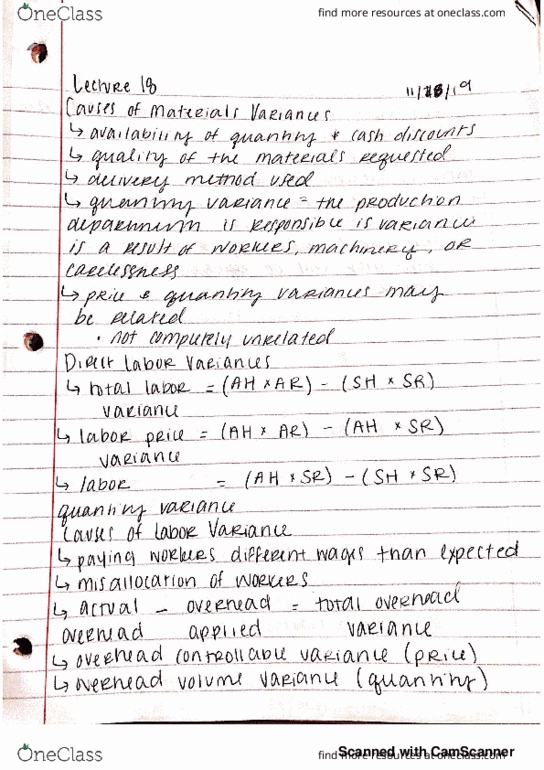 OneClass
find more resources at oneclass.com
Lecture 18
11/18/19
Causes of Materials Variances
↳ availability of quantity & cash discounts
↳ quality of the materials requested
↳ delivery method used
↳ quantity variance = the production
department is responsible is variance
is a result of workers, machinery, or
carelessness
↳ price & quantity variances may
be related
• not completely unrelated
Direct Labor Variances
↳ total labor = (AH × AR) - (SH × SR)
variance
↳ labor price = (AH × AR) - (AH × SR)
variance
↳ labor = (AH × SR) - (SH × SR)
quantity variance
Causes of Labor Variance
↳ paying workers different wages than expected
↳ misallocation of workers
↳ actual - overhead = total overhead
overhead applied variance
↳ overhead controllable variance (price)
↳ overhead volume variance (quantity)
OneClass
find more resources at oneclass.com
Scanned with CamScanner